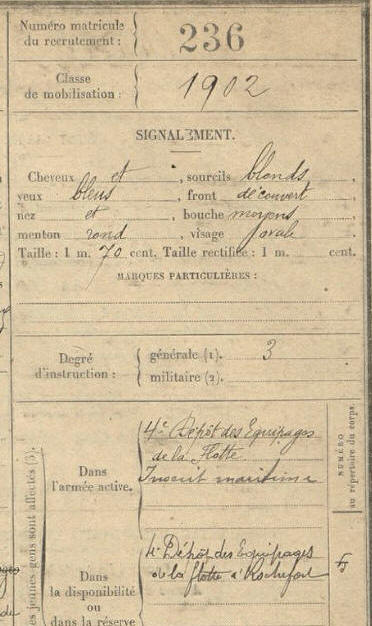 Numéro matricule
du recrutement : 236
Classe
de mobilisation : 1902
SIGNALEMENT.
Cheveux et , sourcils blonds ,
yeux bleus , front découvert
nez et , bouche moyens ,
menton rond , visage ovale
Taille : 1 m. 70 cent. Taille rectifiée : 1 m. cent.
MARQUES PARTICULIÈRES :
Degré
d'instruction :
générale (1). 3
militaire (2).
NUMÉRO
au répertoire du corps.
es jeunes gens sont affectés (3).
Dans
l'armée active.
4e Dépôt des Equipages
de la Flotte
Inscrit maritime
Dans
la disponibilité
ou
dans la réserve
4e Dépôt des Equipages
de la flotte à Rochefort